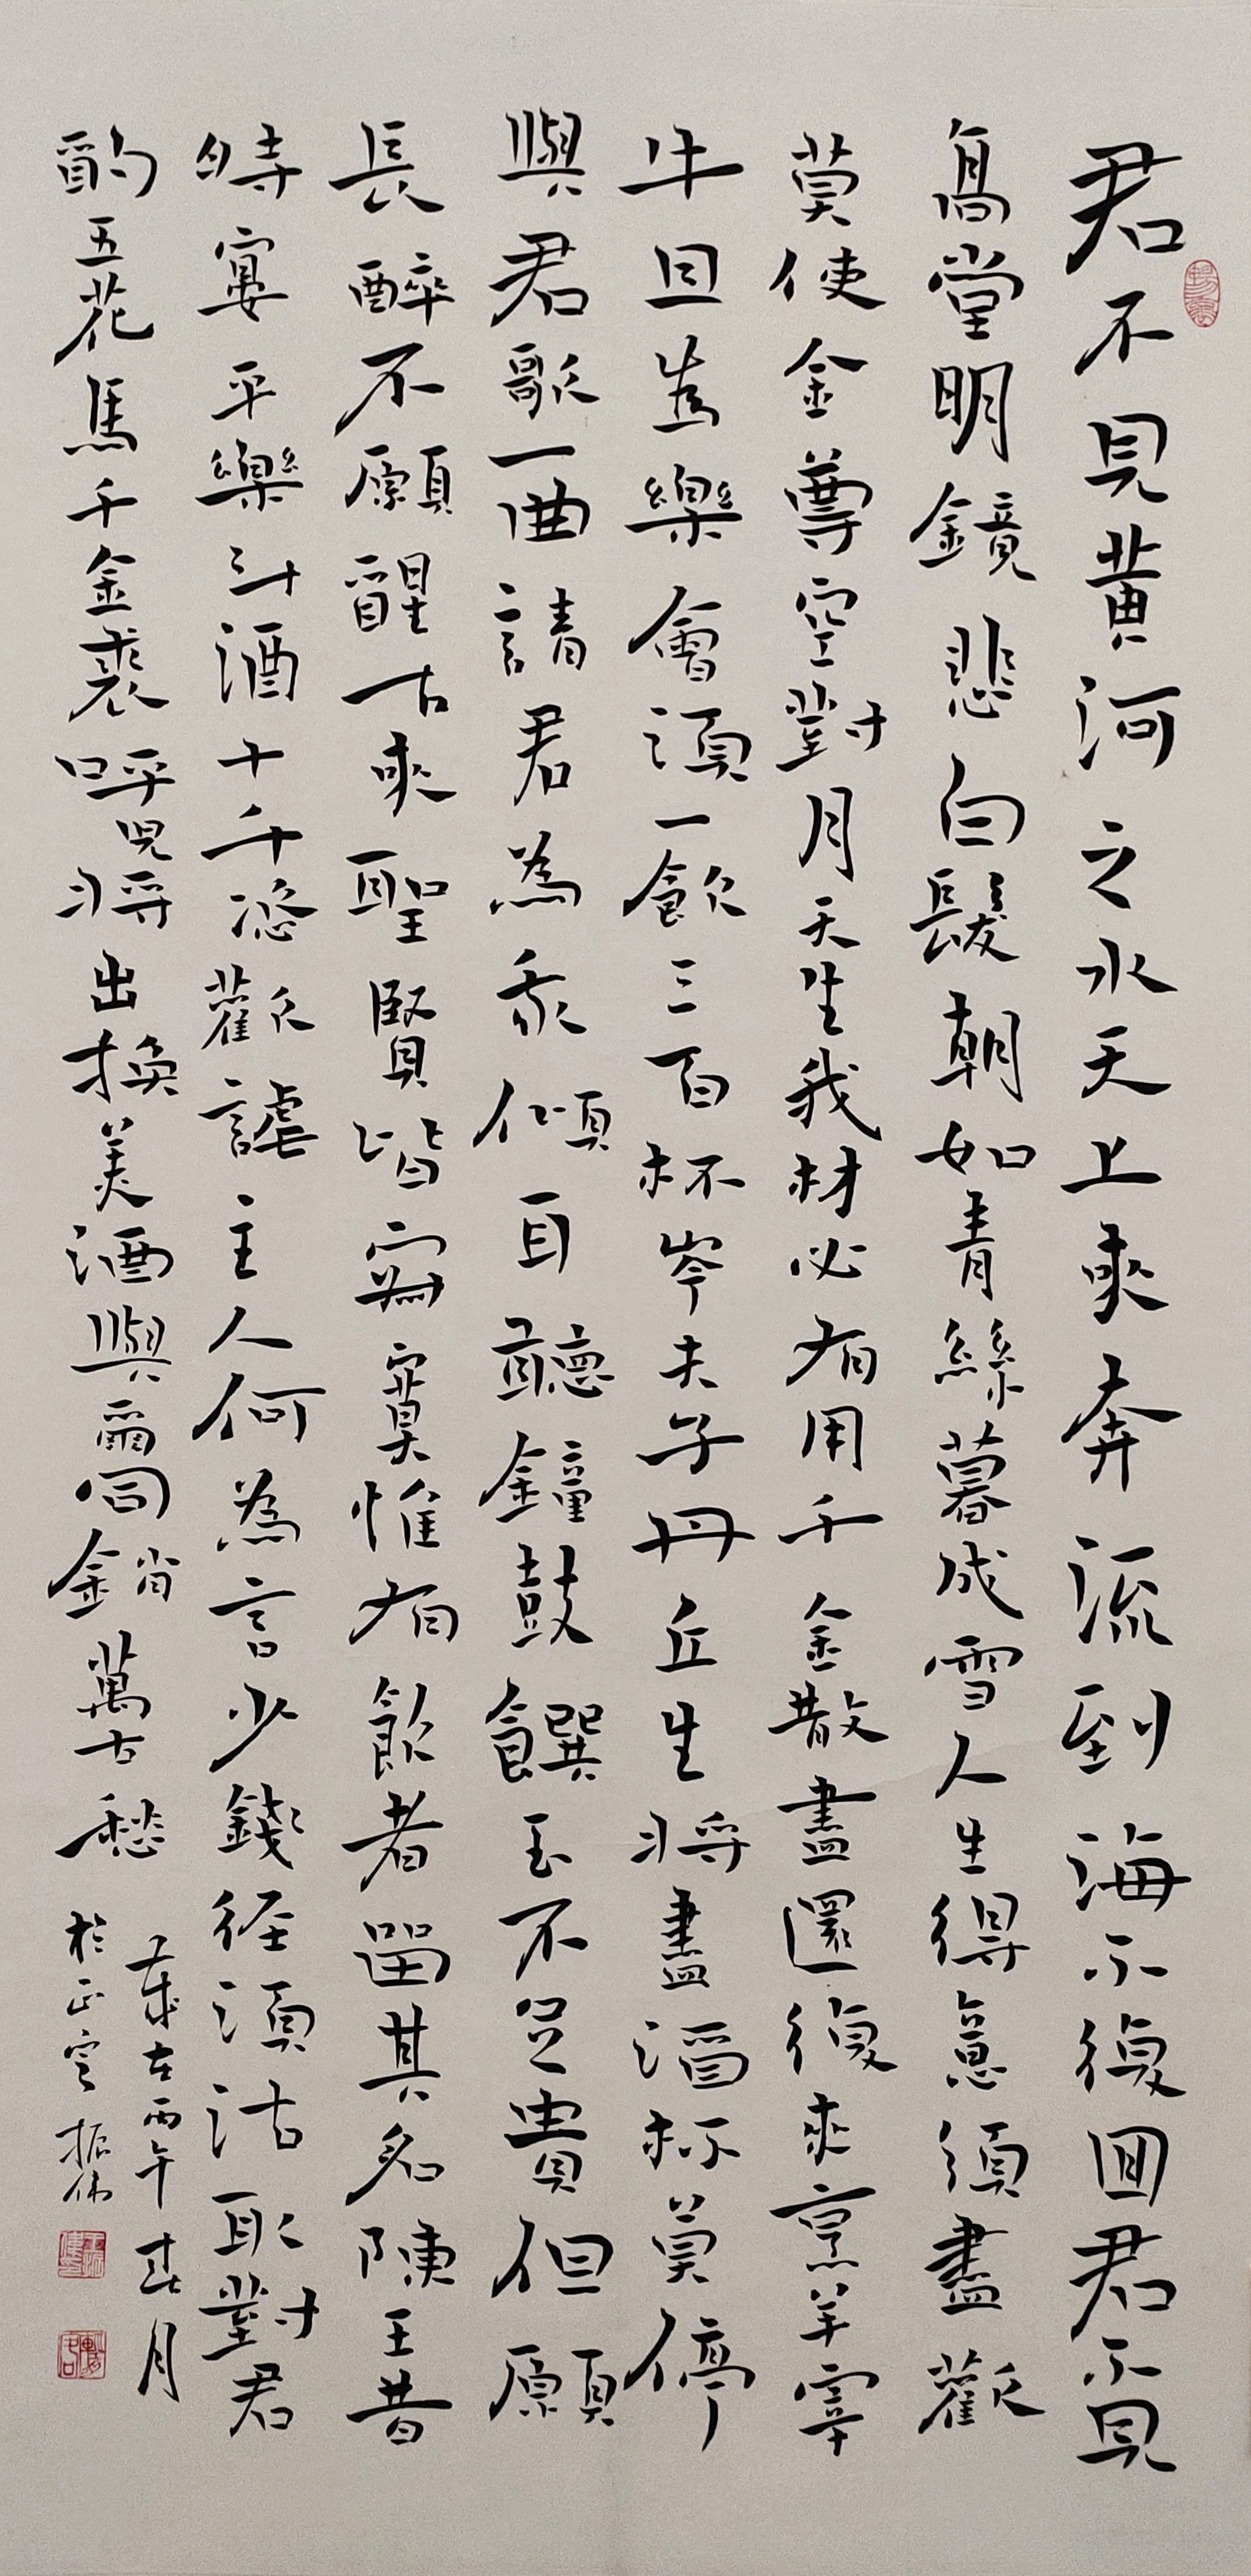 君不見黃河之水天上來奔流到海不復回君不見
高堂明鏡悲白髮朝如青絲暮成雪人生得意須盡歡
莫使金尊空對月天生我材必有用千金散盡還復來烹羊宰
牛且為樂會須一飲三百杯岑夫子丹丘生將盡酒杯莫停
與君歌一曲請君為我傾耳聽鐘鼓饌玉不足貴但願
長醉不願醒古來聖賢皆寂寞惟有飲者留其名陳王昔
時宴平樂斗酒十千恣歡謔主人何為言少錢徑須沽取對君
酌五花馬千金裘呼兒將出換美酒與爾同銷萬古愁
歲在丙午春月
於正定振偉